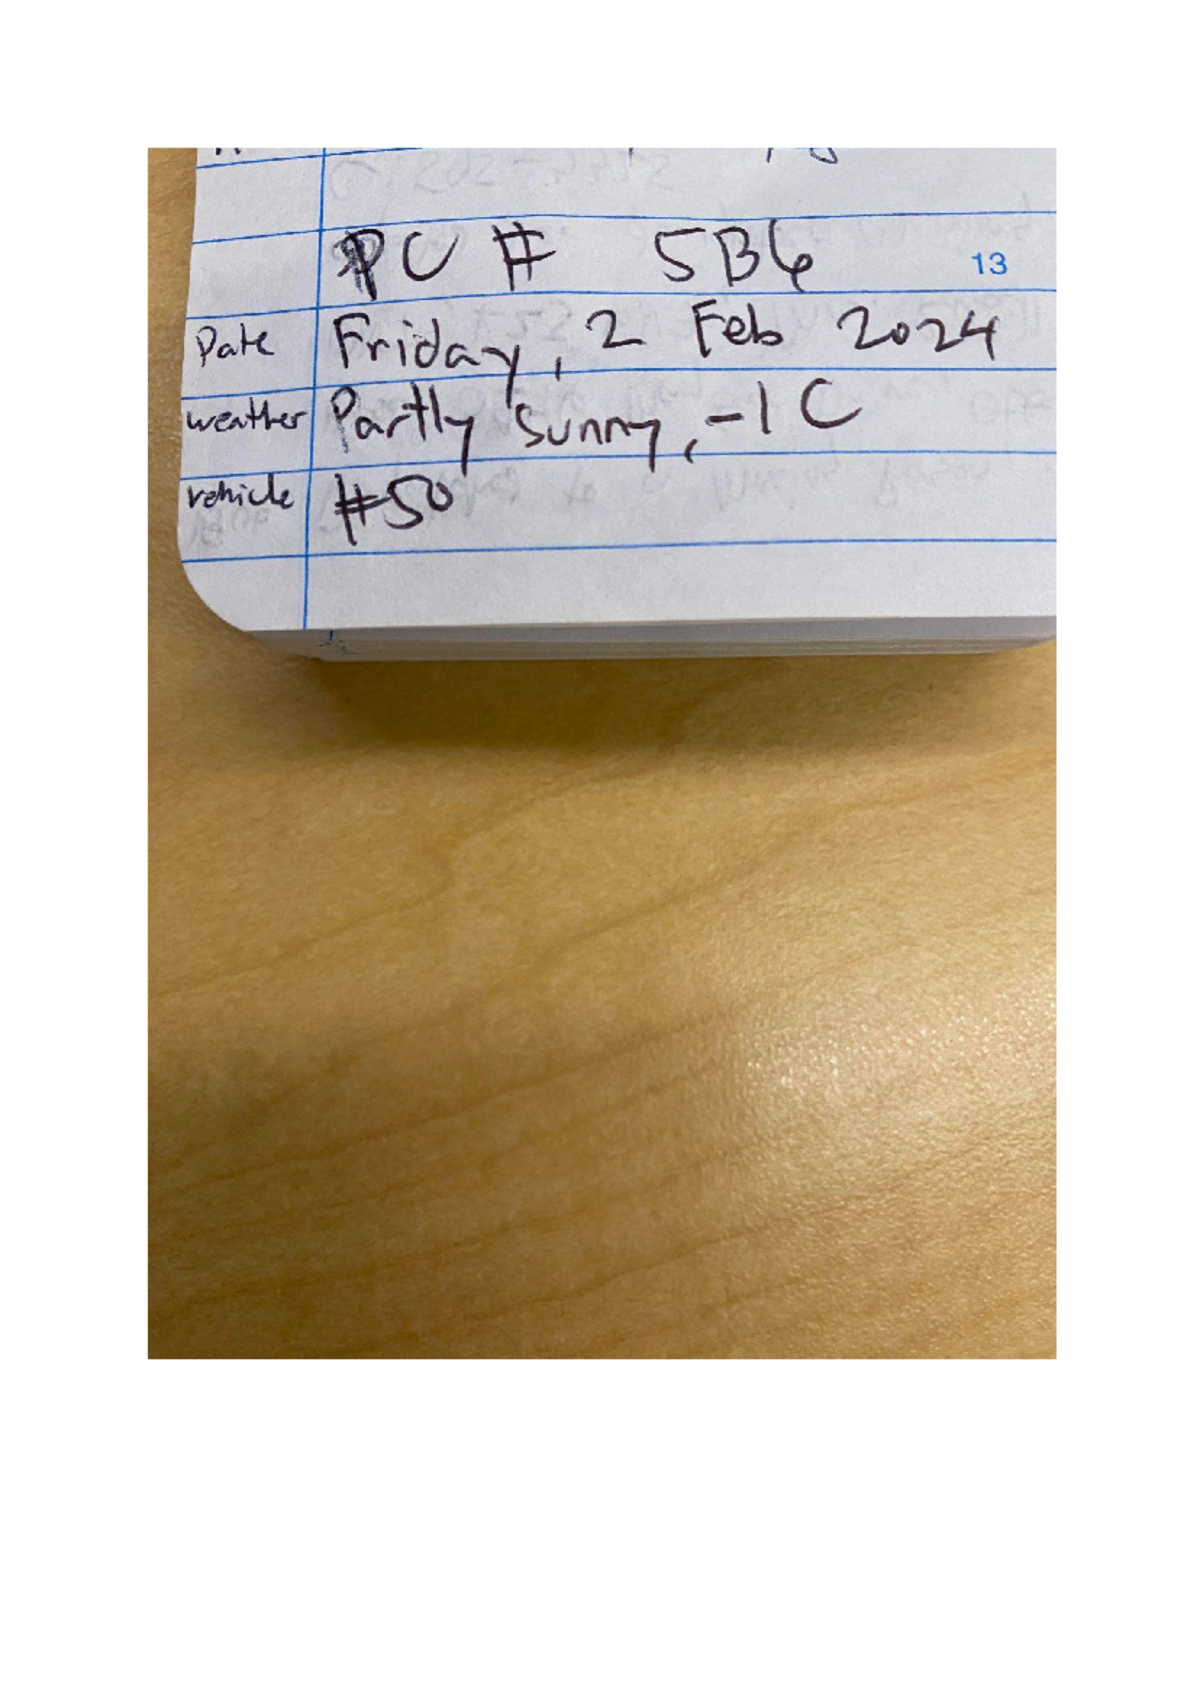 PC # 5B6 13
Date Friday, 2 Feb 2024
weather Partly sunny, -1 C
vehicle #50